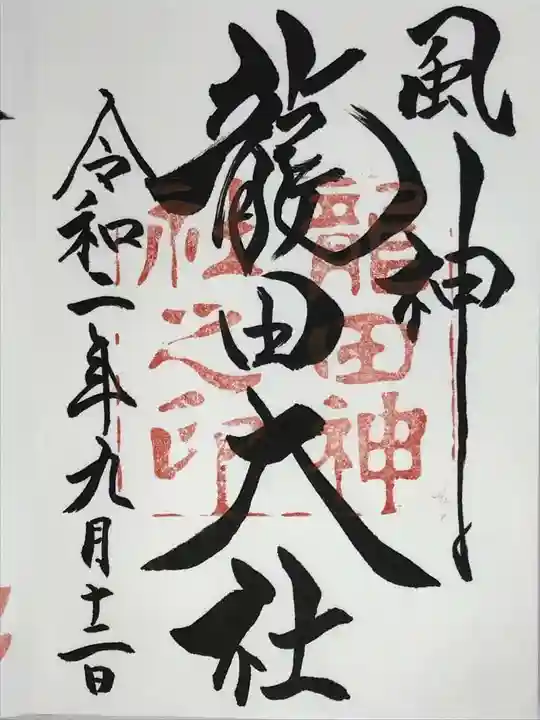 風神
龍田大社
令和二年九月十二日
龍田神
社之印